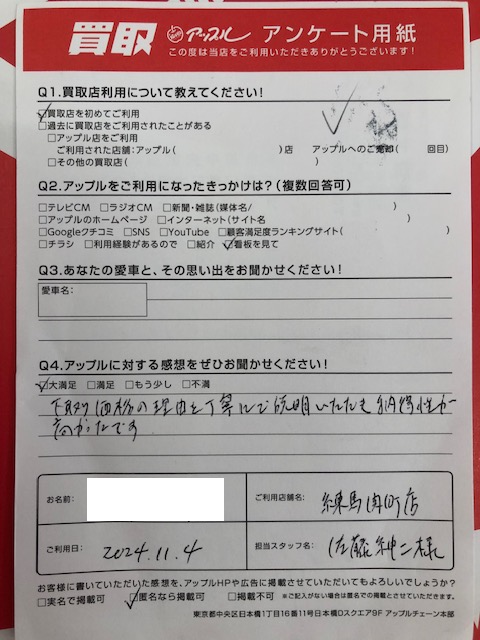 買取 アップル アンケート用紙
この度は当店をご利用いただきありがとうございます!
Q1.買取店利用について教えてください!
☑買取店を初めてご利用
□過去に買取店をご利用されたことがある
□アップル店をご利用
ご利用された店舗:アップル( )店 アップルへのご売却( 回目)
□その他の買取店( )
Q2.アップルをご利用になったきっかけは?(複数回答可)
□テレビCM □ラジオCM □新聞・雑誌(媒体名/ )
□アップルのホームページ □インターネット(サイト名 )
□Googleクチコミ □SNS □YouTube □顧客満足度ランキングサイト( )
□チラシ □利用経験があるので □紹介 ☑看板を見て
Q3.あなたの愛車と、その思い出をお聞かせください!
愛車名:
Q4.アップルに対する感想をぜひお聞かせください!
☑大満足 □満足 □もう少し □不満
下取り価格の理由を丁寧にご説明いただき納得性が
高かったです
お名前:
ご利用店舗名: 練馬関町店
ご利用日: 2024.11.4
担当スタッフ名: 佐藤紳二様
お客様に書いていただいた感想を、アップルHPや広告に掲載させていただいてもよろしいでしょうか?
□実名で掲載可 ☑匿名なら掲載可 □掲載不可 ※ご記入がない場合は匿名での掲載とさせていただきます。
東京都中央区日本橋1丁目16番11号日本橋Dスクエア9F アップルチェーン本部